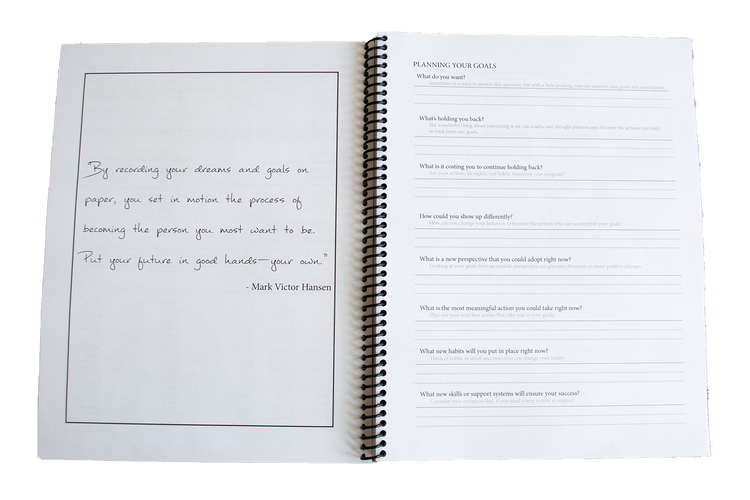 "By recording your dreams and goals on
paper, you set in motion the process of
becoming the person you most want to be.
Put your future in good hands—your own."
- Mark Victor Hansen
PLANNING YOUR GOALS
What do you want?
Sometimes it is hard to answer this question, but with a little probing, you can uncover your goals
What's holding you back?
The wonderful thing about journaling is we can analyze our thought patterns and become the
or back from our goals.
What is it costing you to continue holding back?
Are your actions, thoughts, and habits impeding your progress?
How could you show up differently?
How can you change your behavior to become the person who can accomplish your goals?
What is a new perspective that you could adopt right now?
Looking at your goals from an outside perspective can give you direction
What is the most meaningful action you could take right now?
Plan out your next best action that take you to your goals.
What new habits will you put in place right now?
Think of habits or small successes that can change your
What new skills or support systems will ensure your success?
Consider your resources and, if you need a new system or support.